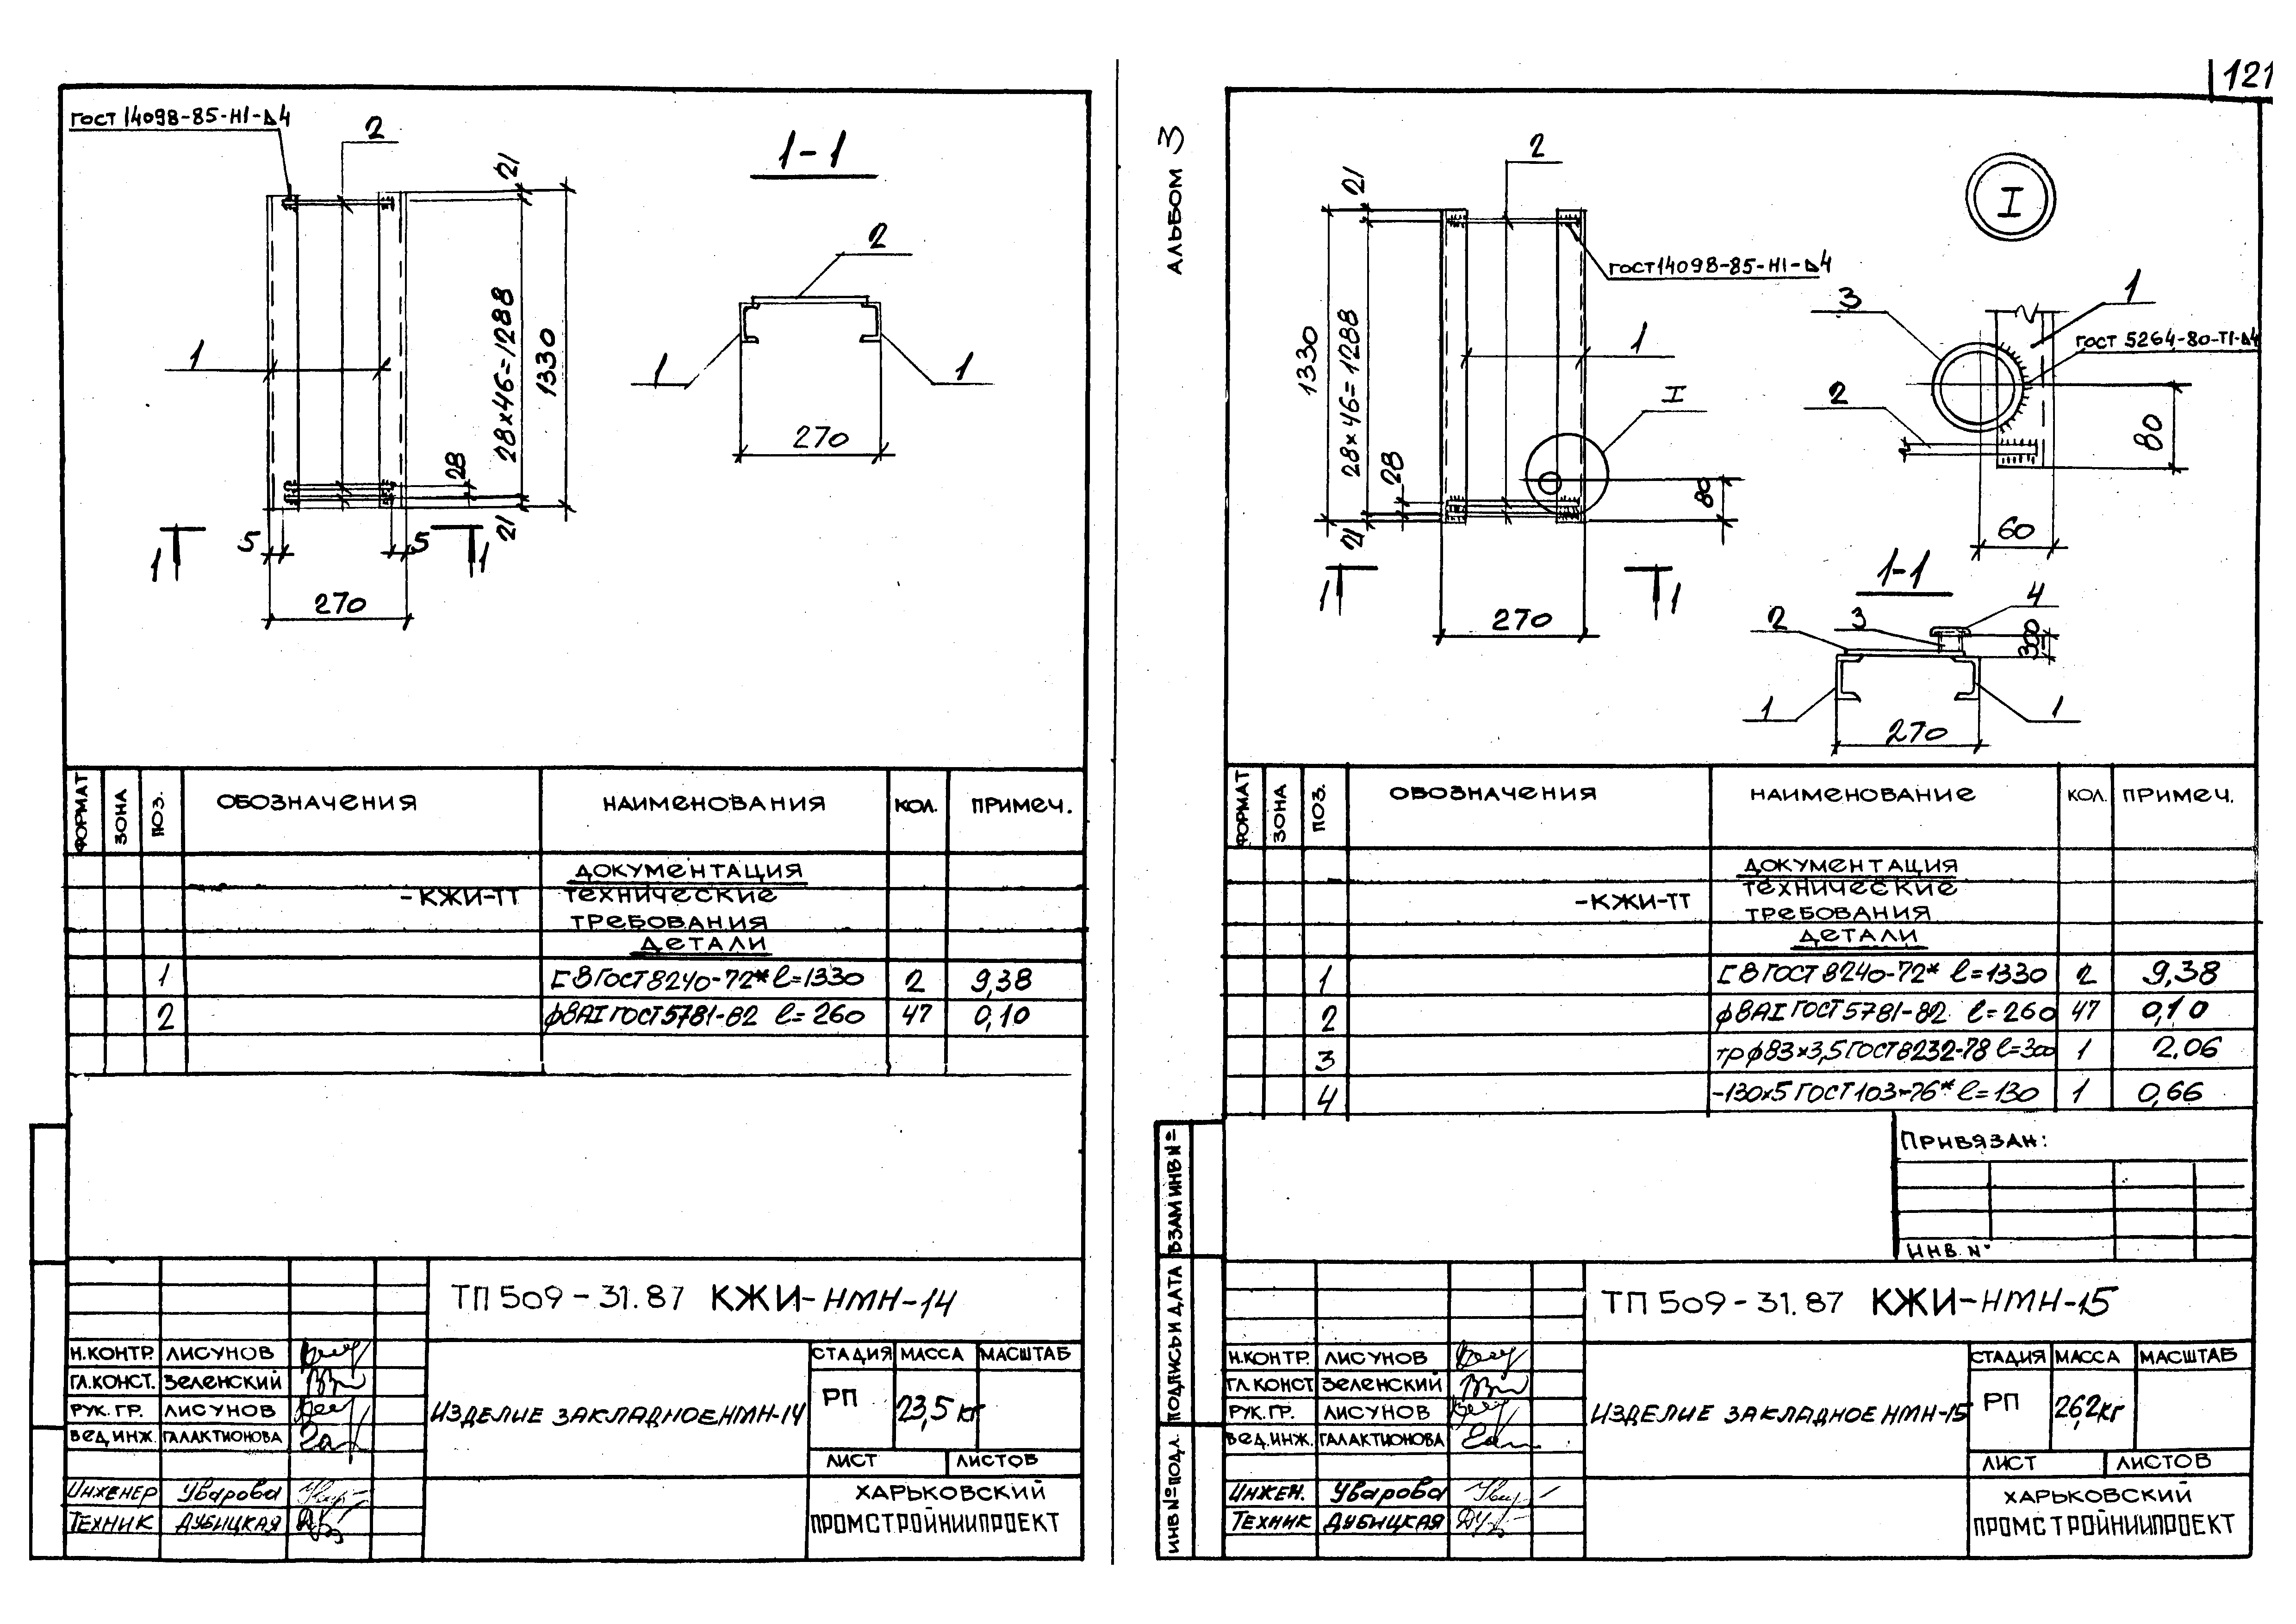 121
АЛЬБОМ 3
ГОСТ 14098-85-Н1-⊿4
2
1-1
21
2
1
28×46=1288
1330
1
1
270
28
21
5
5
1
1
270
ФОРМАТ
ЗОНА
ПОЗ.
ОБОЗНАЧЕНИЯ
НАИМЕНОВАНИЯ
КОЛ.
ПРИМЕЧ.
ДОКУМЕНТАЦИЯ
-КЖИ-ТТ ТЕХНИЧЕСКИЕ
ТРЕБОВАНИЯ
ДЕТАЛИ
1 [8 ГОСТ 8240-72* l=1330 2 9,38
2 ф8АI ГОСТ 5781-82 l=260 47 0,10
ТП 509-31.87 КЖИ-НМН-14
Н.КОНТР. ЛИСУНОВ
ГЛ.КОНСТ. ЗЕЛЕНСКИЙ
РУК. ГР. ЛИСУНОВ
ВЕД.ИНЖ. ГАЛАКТИОНОВА
ИНЖЕНЕР УВАРОВА
ТЕХНИК ДУБИЦКАЯ
ИЗДЕЛИЕ ЗАКЛАДНОЕ НМН-14
СТАДИЯ МАССА МАСШТАБ
РП 23,5 кг
ЛИСТ ЛИСТОВ
ХАРЬКОВСКИЙ
ПРОМСТРОЙНИИПРОЕКТ
2
21
I
ГОСТ 14098-85-Н1-⊿4
1330
28×46=1288
1
I
28
80
21
1
1
270
3
1
ГОСТ 5264-80-Т1-⊿4
2
80
60
1-1
4
2
3
300
1
1
270
ФОРМАТ
ЗОНА
ПОЗ.
ОБОЗНАЧЕНИЯ
НАИМЕНОВАНИЕ
КОЛ.
ПРИМЕЧ.
ДОКУМЕНТАЦИЯ
-КЖИ-ТТ ТЕХНИЧЕСКИЕ
ТРЕБОВАНИЯ
ДЕТАЛИ
1 [8 ГОСТ 8240-72* l=1330 2 9,38
2 ф8АI ГОСТ 5781-82 l=260 47 0,10
3 тр ф83×3,5 ГОСТ 8232-78 l=300 1 2,06
4 -130×5 ГОСТ 103-76* l=130 1 0,66
ПРИВЯЗАН:
ИНВ. №
ВЗАМ ИНВ №
ПОДПИСЬ И ДАТА
ИНВ № ПОДЛ.
ТП 509-31.87 КЖИ-НМН-15
Н.КОНТР. ЛИСУНОВ
ГЛ.КОНСТ ЗЕЛЕНСКИЙ
РУК.ГР. ЛИСУНОВ
ВЕД.ИНЖ. ГАЛАКТИОНОВА
ИНЖЕН. УВАРОВА
ТЕХНИК ДУБИЦКАЯ
ИЗДЕЛИЕ ЗАКЛАДНОЕ НМН-15
СТАДИЯ МАССА МАСШТАБ
РП 26,2кг
ЛИСТ ЛИСТОВ
ХАРЬКОВСКИЙ
ПРОМСТРОЙНИИПРОЕКТ